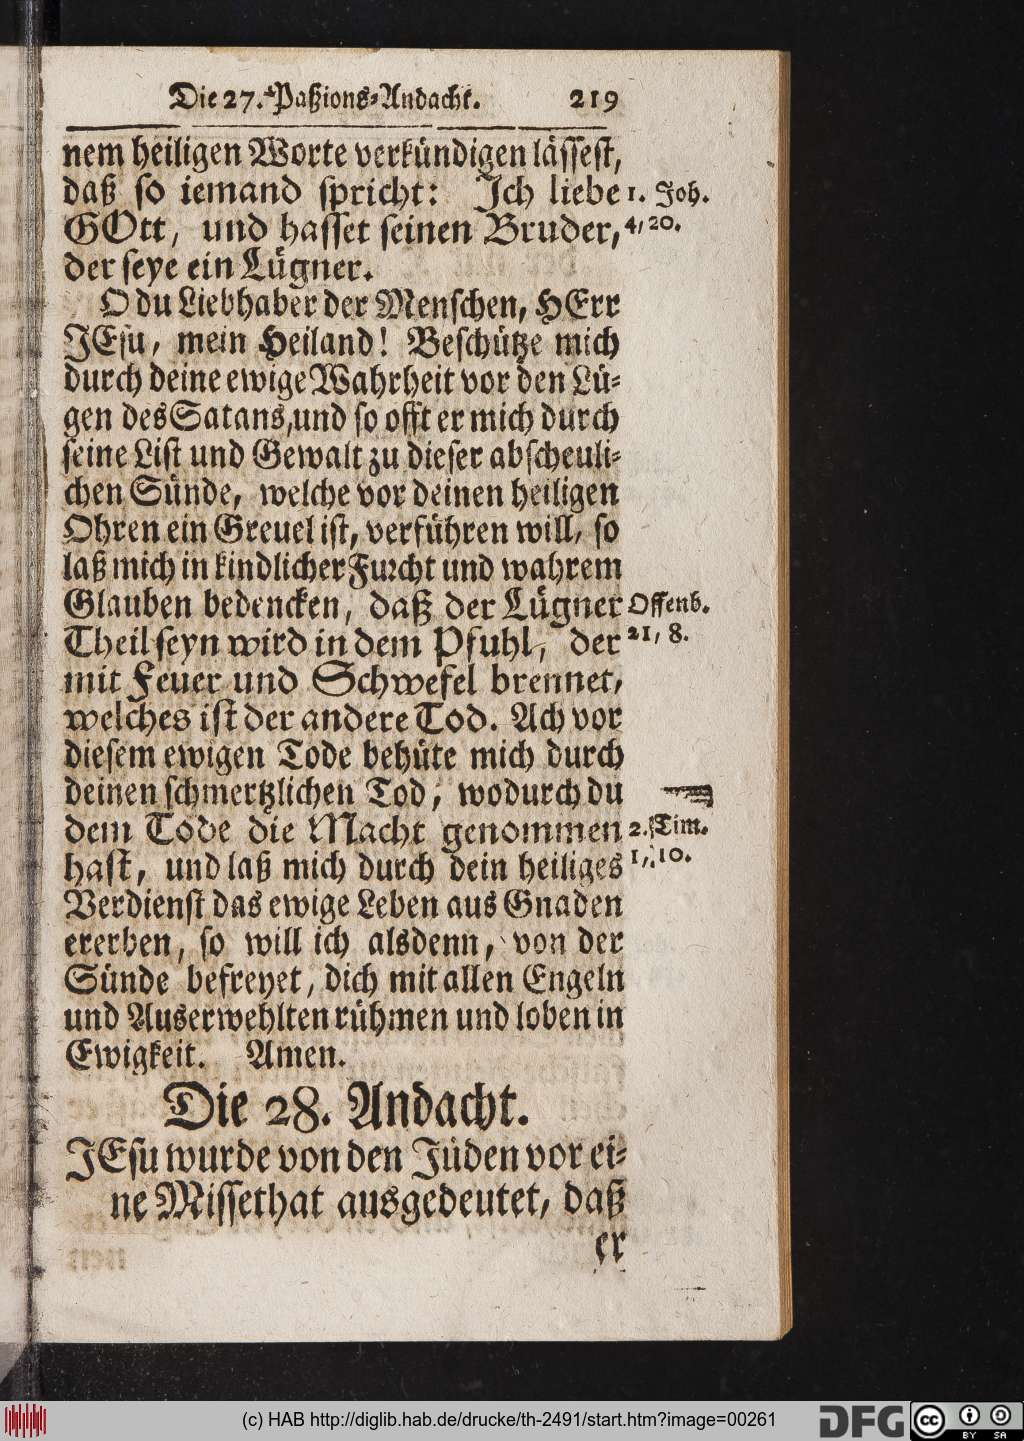 Die 27. Paßions-Andacht. 219
nem heiligen Worte verkündigen lässest,
daß so iemand spricht: Ich liebe 1. Joh.
GOtt, und hasset seinen Bruder, 4, 20.
der seye ein Lügner.
O du Liebhaber der Menschen, HErr
JEsu, mein Heiland! Beschütze mich
durch deine ewige Wahrheit vor den Lü-
gen des Satans, und so offt er mich durch
seine List und Gewalt zu dieser abscheuli-
chen Sünde, welche vor deinen heiligen
Ohren ein Greuel ist, verführen will, so
laß mich in kindlicher Furcht und wahrem
Glauben bedencken, daß der Lügner Offenb.
Theil seyn wird in dem Pfuhl, der 21, 8.
mit Feuer und Schwefel brennet,
welches ist der andere Tod. Ach vor
diesem ewigen Tode behüte mich durch
deinen schmertzlichen Tod, wodurch du
dem Tode die Macht genommen 2. Tim.
hast, und laß mich durch dein heiliges 1, 10.
Verdienst das ewige Leben aus Gnaden
ererben, so will ich alsdenn, von der
Sünde befreyet, dich mit allen Engeln
und Auserwehlten rühmen und loben in
Ewigkeit. Amen.
Die 28. Andacht.
JEsu wurde von den Jüden vor ei-
ne Missethat ausgedeutet, daß
er
(c) HAB http://diglib.hab.de/drucke/th-2491/start.htm?image=00261
DFG cc BY SA